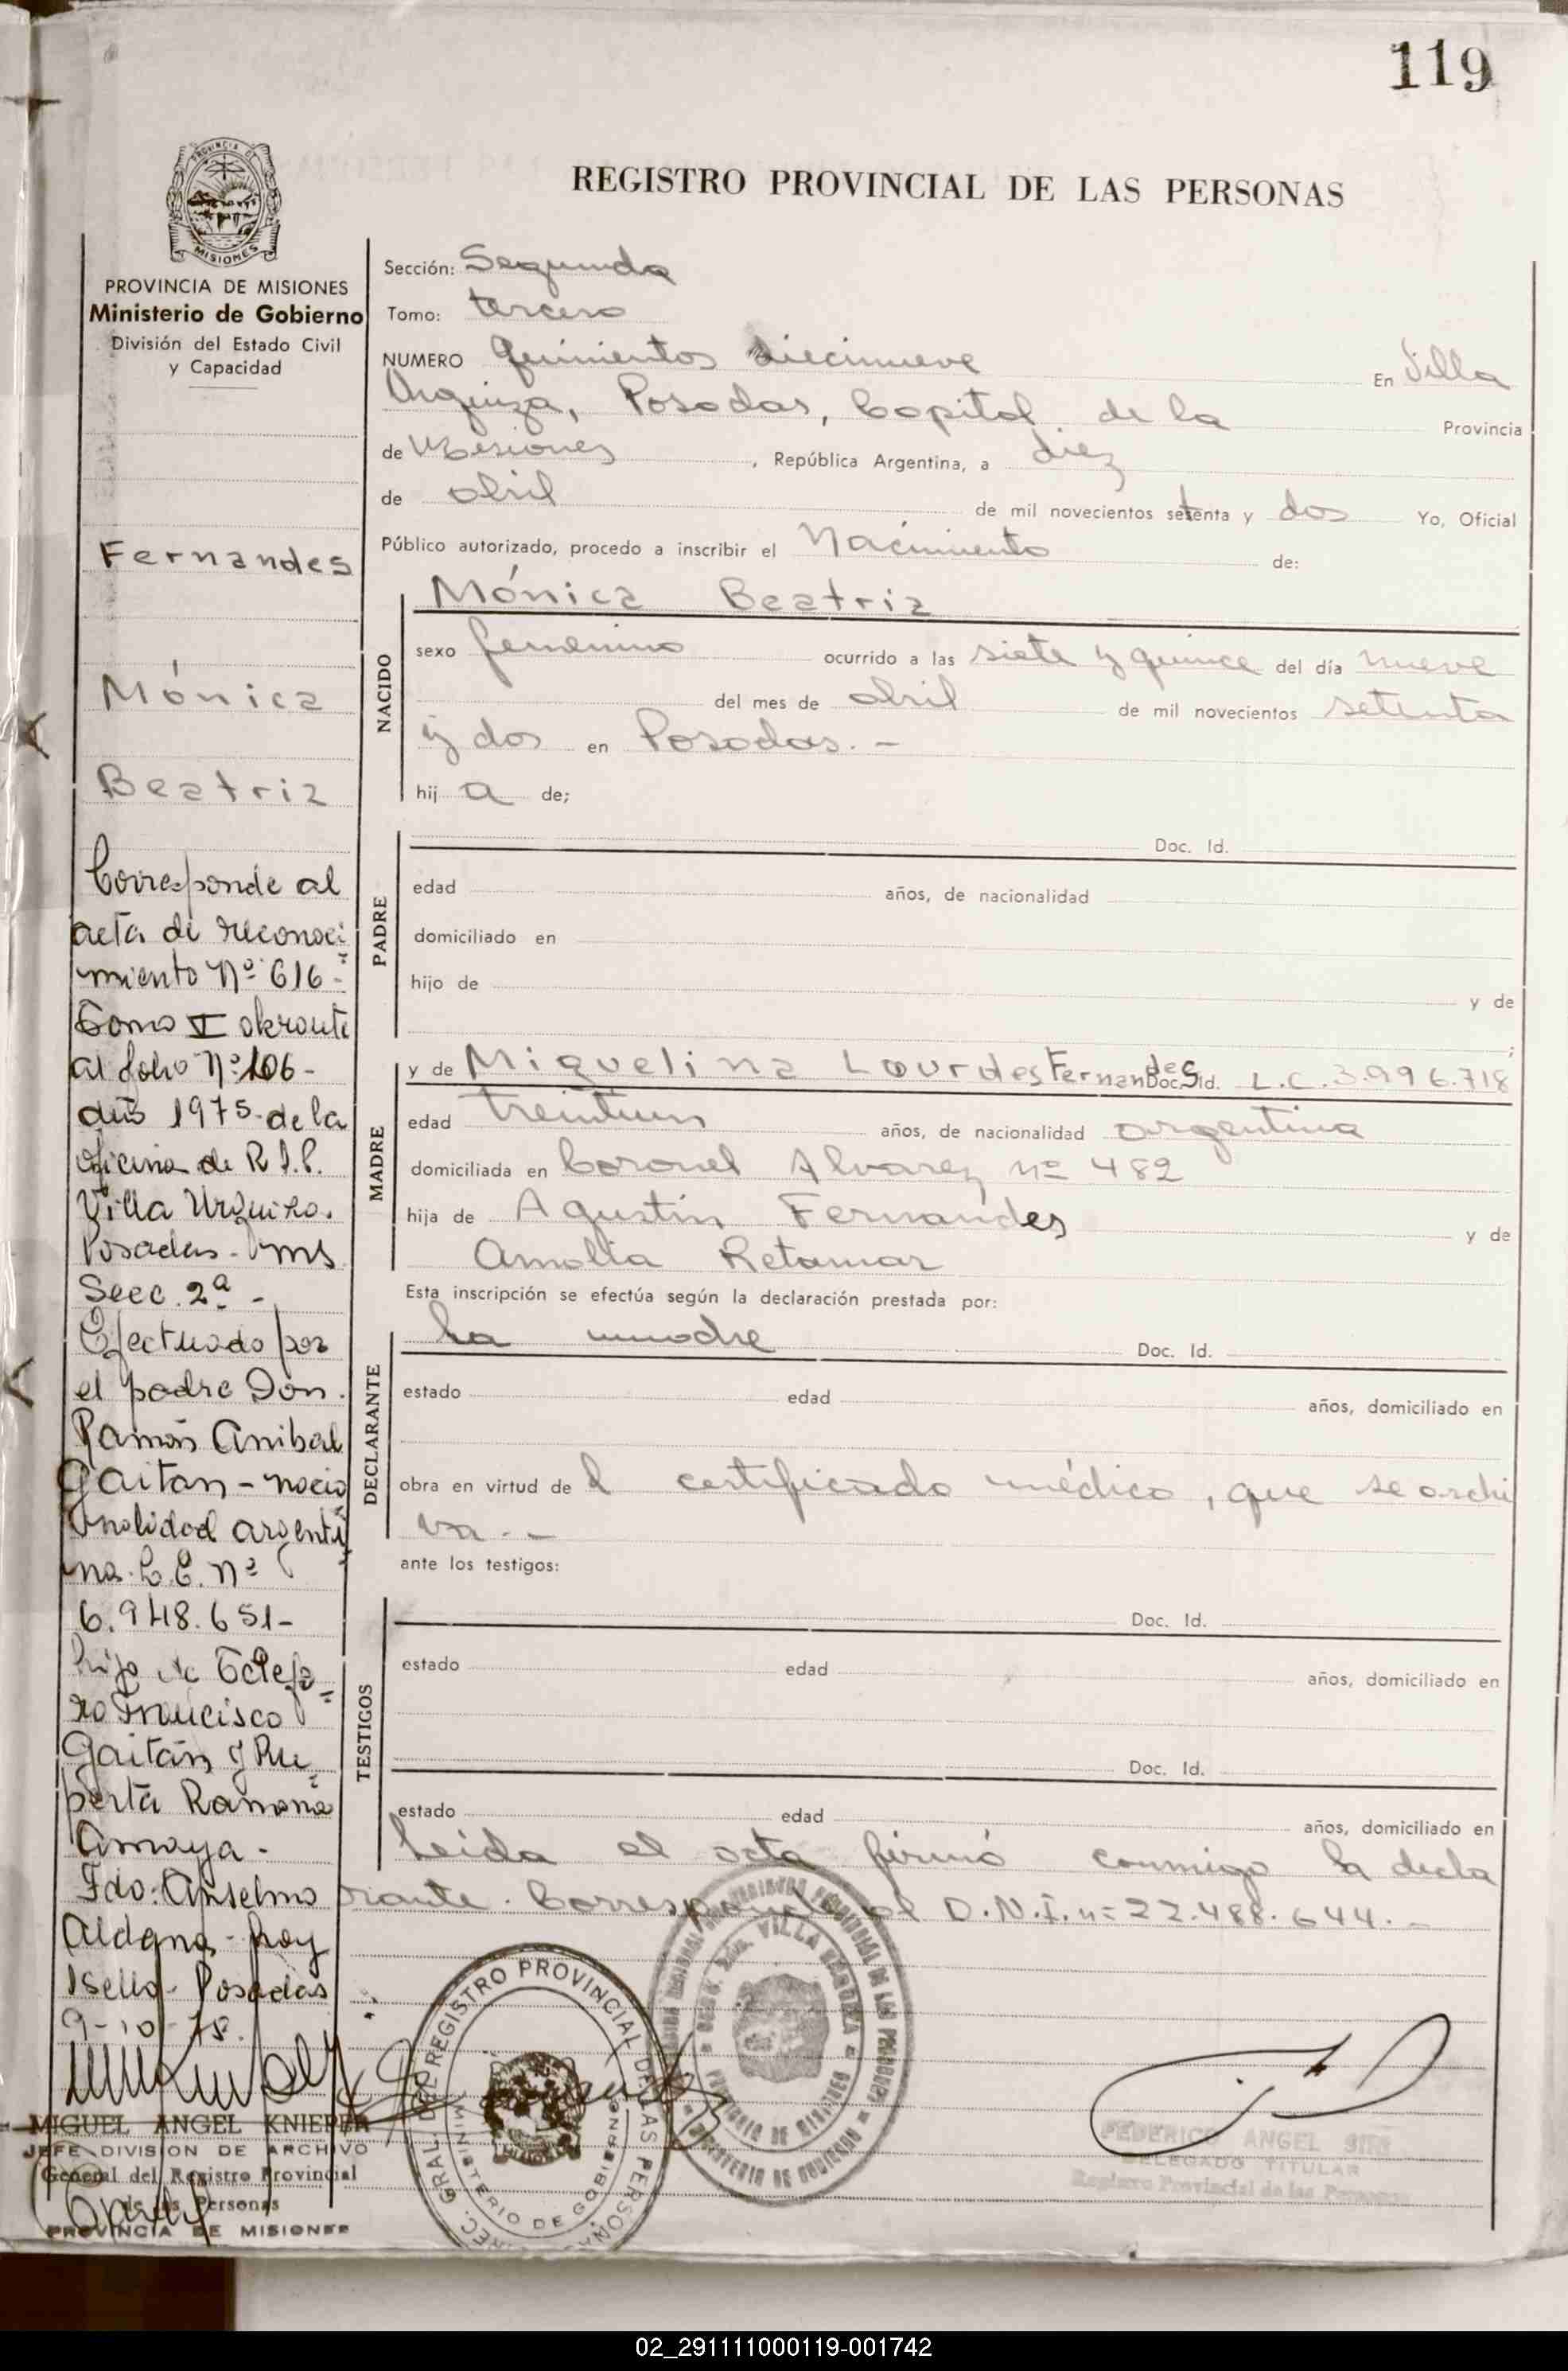 119
PROVINCIA DE
MISIONES
REGISTRO PROVINCIAL DE LAS PERSONAS
PROVINCIA DE MISIONES
Ministerio de Gobierno
División del Estado Civil
y Capacidad
Fernandes
Mónica
Beatriz
Corresponde al
acta de reconoci
miento Nº 616-
Tomo V obrante
al folio Nº 106-
año 1975-de la
oficina de R.P.P.
Villa Urquiza.
Posadas-Mns
Secc. 2ª -
Efectuado por
el padre Don.
Ramón Anibal
Gaitan - nacio
nalidad argenti
na. L.E. nº
6.948.651-
hijo de Telesfo
ro Francisco
Gaitán y Ru
perta Ramona
Amaya -
Fdo: Anselmo
Aldana - hay
Sello - Posadas
9-10-75.
MIGUEL ANGEL KNIEPER
JEFE DIVISION DE ARCHIVO
General del Registro Provincial
de las Personas
PROVINCIA DE MISIONES
Sección: Segunda
Tomo: tercero
NUMERO quinientos diecinueve En Villa
Urquiza, Posadas, Capital de la Provincia
de Misiones, República Argentina, a diez
de abril de mil novecientos setenta y dos Yo, Oficial
Público autorizado, procedo a inscribir el Nacimiento de:
NACIDO
Mónica Beatriz
sexo femenino ocurrido a las siete y quince del día nueve
del mes de abril de mil novecientos setenta
y dos en Posadas. -
hij a de;
PADRE
Doc. Id.
edad años, de nacionalidad
domiciliado en
hijo de y de
;
MADRE
y de Miguelina Lourdes Fernandes Doc. Id. L.C. 3.996.718
edad treintiun años, de nacionalidad argentina
domiciliada en Coronel Alvarez nº 482
hija de Agustín Fernandes y de
Amalia Retamar
Esta inscripción se efectúa según la declaración prestada por:
DECLARANTE
la madre Doc. Id.
estado edad años, domiciliado en
obra en virtud de l certificado médico, que se archi
va. -
ante los testigos:
TESTIGOS
Doc. Id.
estado edad años, domiciliado en
Doc. Id.
estado edad años, domiciliado en
Leida el acta firmó conmigo la decla
rante. Corresponde al D.N.I. nº 22.488.644. -
DIREC. GRAL. DEL REGISTRO PROVINCIAL DE LAS PERSONAS
MINISTERIO DE GOBIERNO
PROVINCIAL DE LAS PERSONAS
VILLA URQUIZA
PROVINCIA DE MISIONES
MINISTERIO DE GOBIERNO
FEDERICO ANGEL
DELEGADO TITULAR
Registro Provincial de las Personas
02_291111000119-001742